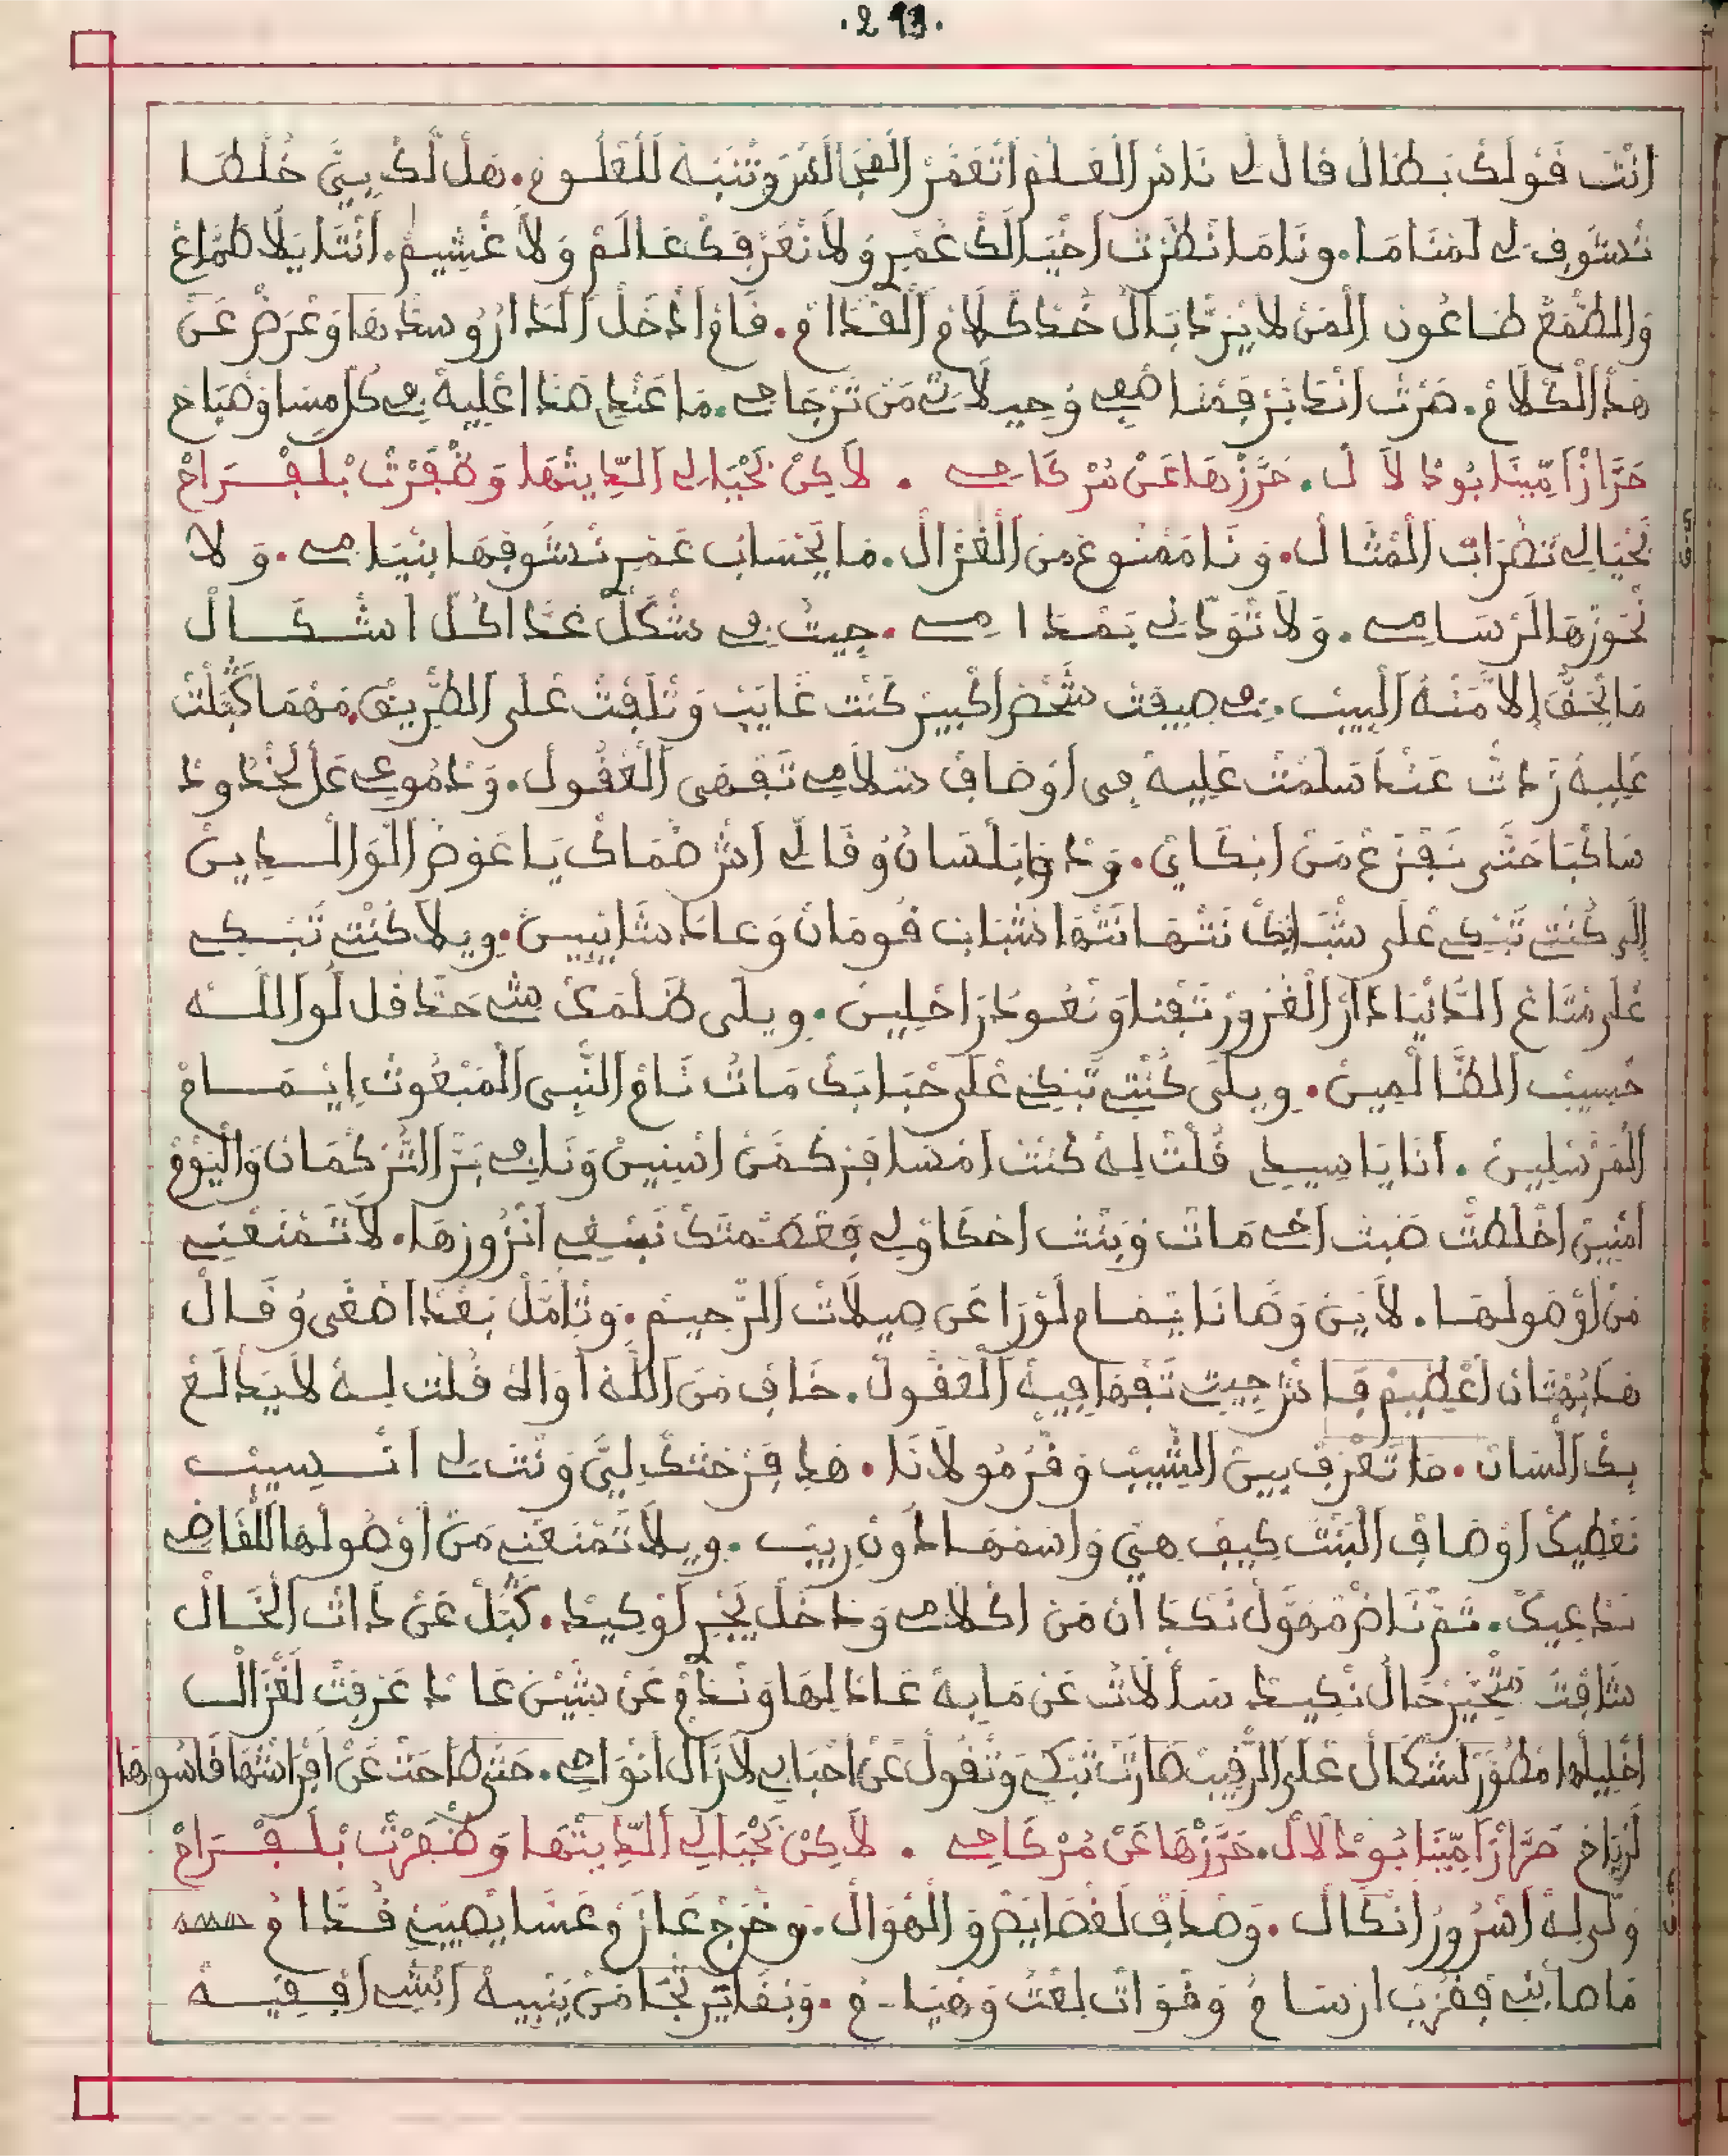 .293.
انْتَ قَوْلَكْ بَطَالْ قال لِي نَاسْ الْعَلْمْ اتْغَمْرْ وتْنَبَهْ لَلْعَلْوم. هَلْ لَكْ بِيَّ خُلْطَا
تْشَوِفْ لِي لَمْنَامَا. وَنَا مَا نْظَرْتْ اخْيَالَكْ عَمْرِ وَلاَ نَعْرَفَكْ عَالَمْ وَلاَ غْشِيمْ. انْتَايَلاَ طَمَّاعْ
وَالطَّمْعْ طَاعُونْ الْمَنْ لاَ يْرَدْ بَالْ خُدْ كْلاَمْ الْقْدَامْ. قَامْ ادْخَلْ الدَّارُ وسْدْهَا وَعْرَضْ عَنْ
هَدَ الْكْلاَمْ. صَرْتْ انْكَابَرْ فَمْنَاصْبِي وُحِيلاَتِي مَنْ تَرْجَاجِي. مَا عَنْدِي هَدَا اعْلِيهْ فِي كُلْ مسَا وَصْبَاحْ
حَرَّازْ امِّينَا بُودْلاَل. حَرَّزْهَا عَنْ مُرْكَاحِي . لاَكِنْ بَحْيَالِي الدِّيتْهَا وَظْفَرْتْ بْلَفْرَاحْ
بَحْيَالِي نَضْرَابْ الْمْثَالْ. وَنَا مَمْنُوعْ مَنْ الْغْزَالْ. مَا بَحْسَابْ عَمْرِ نْشَوفْهَا بنْيَامِي. وَلاَ
نْحَوزْهَا لَرْسَامِي. وَلاَ تْوَدْنِي بَمْدَامِي. جِيتْ فِي شْكَلْ غْدَا كُلْ اشْكَالْ
مَا يَخْفَ إلاَّ مَنُّهْ الْبِيبْ. فِي صِيفْتْ شْخَصْ اكْبِيرْ كَنْتْ غَايَبْ وَتْلَفْتْ عْلَى الطْرِيقْ مَهْمَا كَبَّلْتْ
عْلِيهْ زَدْتْ عَنْدَ سَلَمْتْ عْلِيهْ فِي اوْصَافْ سْلاَمِي تَفْهَى الْعْقُولْ. وَدْمُوعِي عَلْ لَخْدُودْ
سَاكْبَا حَتَّى نَفْزَعْ مَنْ ابْكَايْ. وُقَالِي اشْ صْمَاكْ يَا عَوضْ الْوَالْدِينْ
إلَى كُنْتِي تَبْكِي عْلَى شْبَابَكْ نَتْهَا نَتْهَا شْبَابْ قُومَانْ وَعَادْ شَايْبِينْ. وِيلاَ كُنْتِي تَبْكِي
عْلَى مْتَاعْ الدَّنْيَا دَارْ الْغْرُورْ تَفْنَا وَنْعُودْ رَاحْلِينْ. وِيلَى ظْلَمَكْ شِي حَدْ قُلْ لُو اللَّهْ
حْسِيبْ الظَّالْمِينْ. وِيلَى كُنْتِي تَبْكِي عْلَى حْبَابَكْ مَاتْ تَاجْ النَّبِي الْمَبْعُوثْ إيمَامْ
الْمَرْسْلِينْ. انَا يَا سِيدِي قُلْتْ لِهْ كُنْتْ امْسَافَرْ كَمَّنْ اسْنِينْ وَنَايَ فِي بَرْ التُّرْكْمَانْ وَالْيُوْمْ
امْنِينْ اخْلَطْتْ صَبْتْ اخِي مَاتْ وَبَنْتْ احْكَاوْ لِي فَعْصَمْتَكْ نَبْغِي انْزُورْهَا. لاَ تَمْنَعْنِي
مَنْ اوْصُولْهَا. لاَيَنْ وَصَانَا يمَامْ لَوْرَا عَنْ صِيلاَتْ الرَّحِيمْ. وَتَامَّلْ بَعْدَ اصْغَى وُقَالْ
هَدَ بُهْتَانْ اعْظِيمْ فَاشْ جِيتْ تَفْهَا فِيهْ الْعْقُولْ. خَافْ مَنْ اللَّهْ اوَالَهْ قُلْتْ لِهْ لاَ يَدْلَعْ
بِكْ الْسَانْ. مَا تَعْرَفْ بِينْ الشِّيبْ وَفَرْ مُولاَنَا. هَدِي فَرْحْتَكْ لِيَّ وَنْتَ لِي انْسِيبْ
نَعْطِيكْ اوْصَافْ الْبَنْتْ كِيفْ هِيَ وَاسْمْهَا دُونْ رِيبْ. وِيلاَ تَمْنَعْنِي مَنْ اوْصُولْهَا لَلْقَاضِي
نَدْعِيكْ. تَمْ نَاضْ مْهَوَّلْ نَكْدَانْ مَنْ اكْلاَمِي وَدْخَلْ يَجْرِ لَوْكِيدْ. كَبَّلْ عَنْ دَاتْ الْخَالْ
شَافَتْ حَالْ نْكِيدْ سَألاَتْ عَنْ مَا بِهْ عَادْ لِهَا وَنْدَمْ عَنْ شَيْنْ عَادْ عَرْفَتْ لَغْزَالْ
اخْلِيلْهَا مْطَوَّرْ لَشْكَالْ عْلَى الرْقِيبْ صَارَتْ تَبْكِي وَتْقُولْ عَنْ احْبَابِي لاَزَالْ انْوَاحِي. حَتَّى طَاحَتْ عَنْ افْرَاشْهَا قَاسُوهَا
لَرْيَاحْ حَرَّازْ امِّينَا بُودْلاَلْ. حَرَّزْهَا عَنْ مُرْكَاحِي . لاَكِنْ بَحْيَالِي الدِّيتْهَا وَظْفَرْتْ بْلَفْرَاحْ
اسْرُورْ انْكَالْ. وَصْدَفْ الْهْوَالْ. وَخْرَجْ عَازَمْ وَعْسَا يْصِيبْنِي قُدَّامُ
ارْسَامُ وَقْوَاتْ لَعْتُ وَهْيَامُ. مَنْ بَنِيهْ